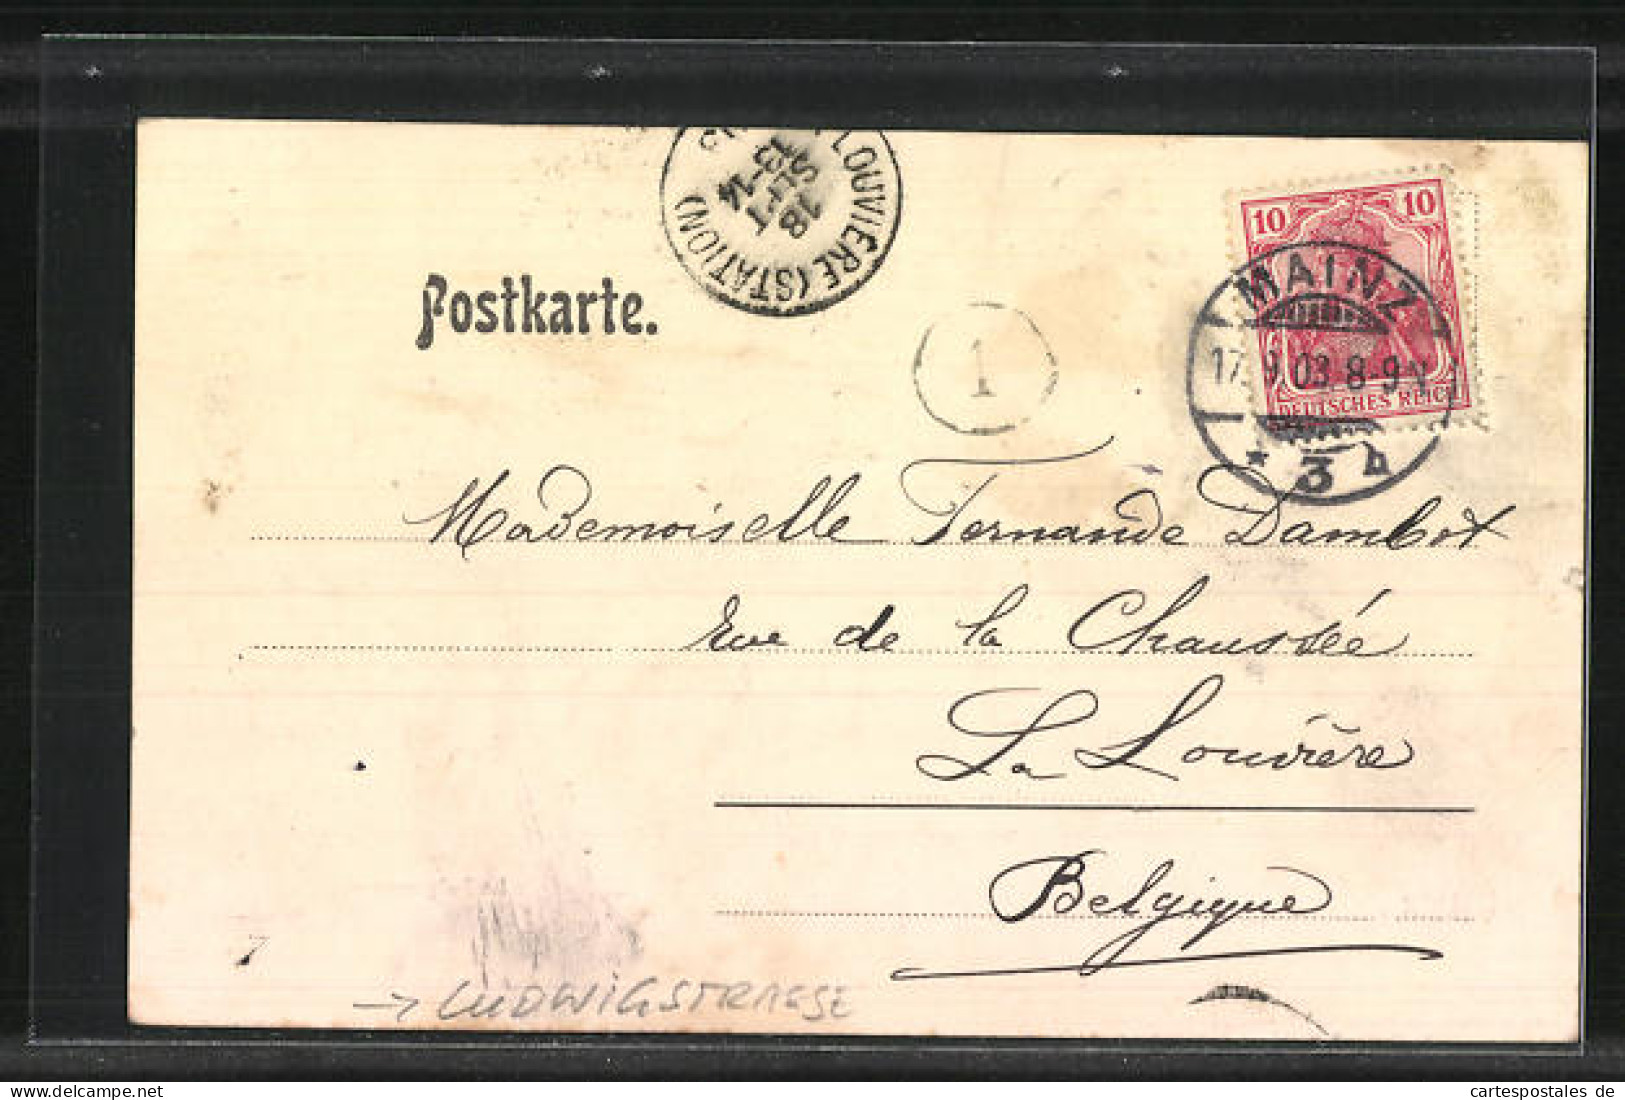 LOUVIÈRE (STATION)
18
SEPT
13-14
Postkarte.
1
10 10
DEUTSCHES REICH
MAINZ
17.9.03.8-9 V
* 3 h
Mademoiselle Fernande Dambot
Rue de la Chaussée
La Louvière
Belgique
→ LUDWIGSTRASSE
cartespostales de